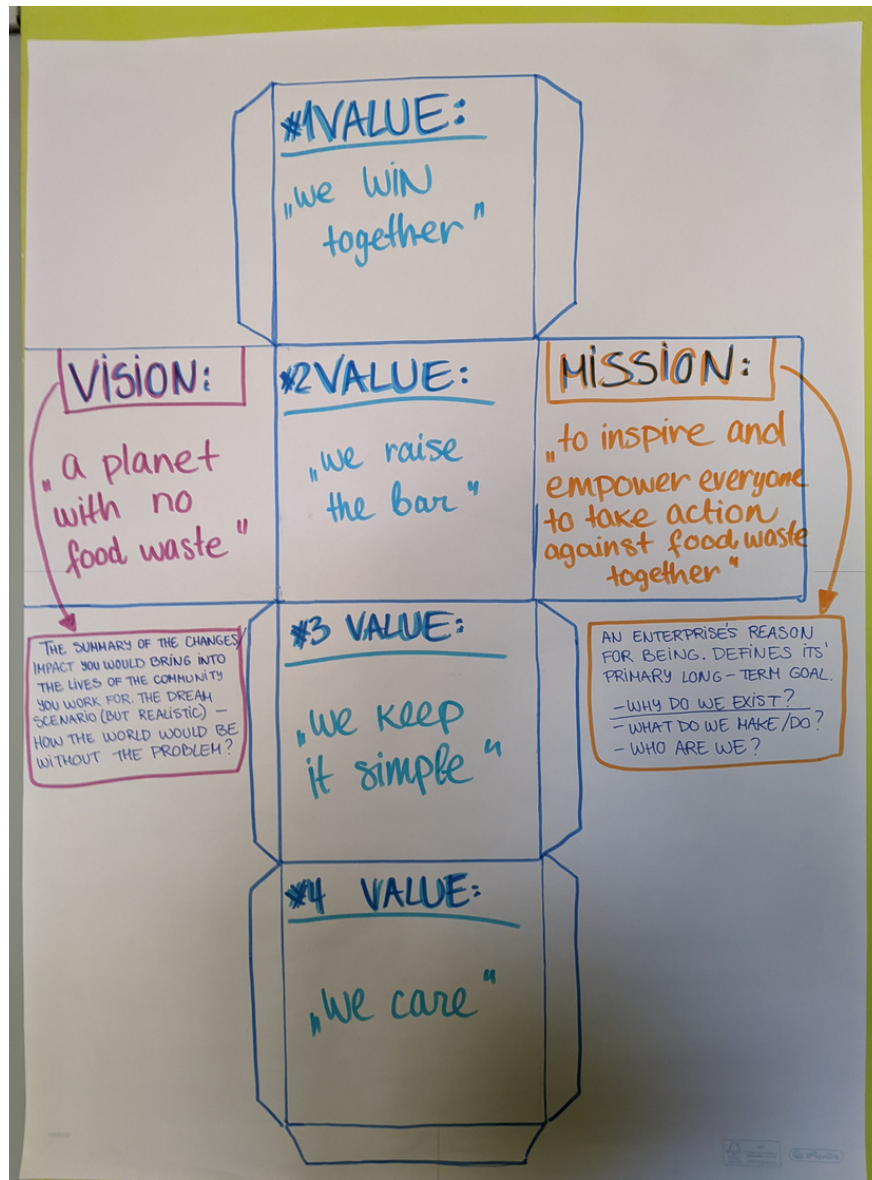 #1 VALUE:
„we WiN
together"
ViSiON:
„a planet
with no
food waste"
#2 VALUE:
„we raise
the bar"
MiSSiON:
„to inspire and
empower everyone
to take action
against food waste
together"
THE SUMMARY OF THE CHANGES/
IMPACT YOU WOULD BRING INTO
THE LIVES OF THE COMMUNITY
YOU WORK FOR. THE DREAM
SCENARIO (BUT REALISTIC) –
HOW THE WORLD WOULD BE
WITHOUT THE PROBLEM?
#3 VALUE:
„we keep
it simple"
AN ENTERPRISE'S REASON
FOR BEING. DEFINES ITS'
PRIMARY LONG-TERM GOAL.
- WHY DO WE EXIST?
- WHAT DO WE MAKE/DO?
- WHO ARE WE?
#4 VALUE:
„we care"